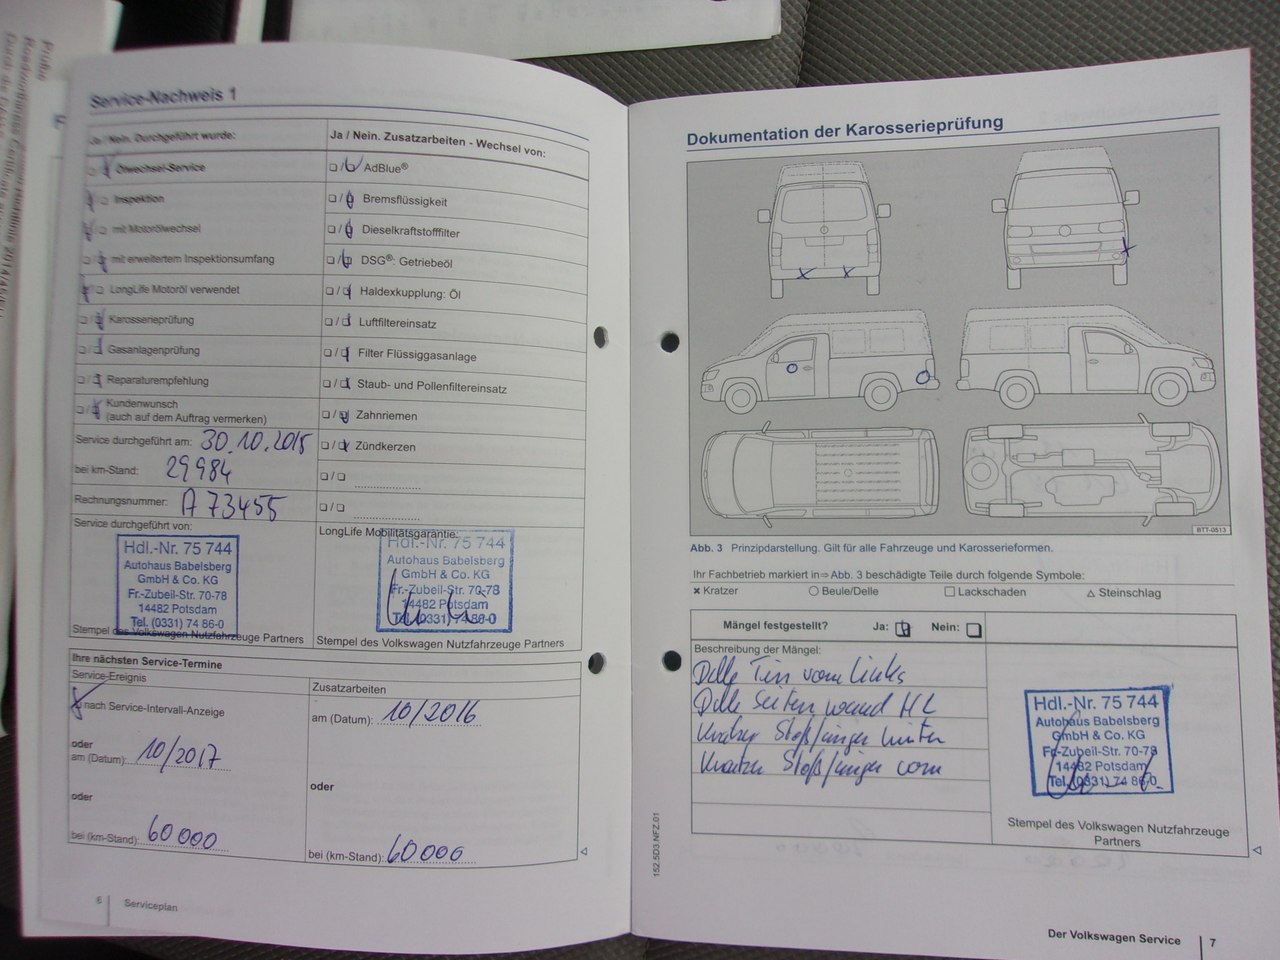 Service-Nachweis 1
Ja / Nein. Durchgeführt wurde:
Ölwechsel-Service
Inspektion
mit Motorölwechsel
mit erweitertem Inspektionsumfang
LongLife Motoröl verwendet
Karosserieprüfung
Gasanlagenprüfung
Reparaturempfehlung
Kundenwunsch
(auch auf dem Auftrag vermerken)
Service durchgeführt am: 30.10.2015
bei km-Stand: 29984
Rechnungsnummer: A 73455
Service durchgeführt von:
Hdl.-Nr. 75 744
Autohaus Babelsberg
GmbH & Co. KG
Fr.-Zubeil-Str. 70-78
14482 Potsdam
Tel. (0331) 74 86-0
Stempel des Volkswagen Nutzfahrzeuge Partners
Ja / Nein. Zusatzarbeiten - Wechsel von:
AdBlue®
Bremsflüssigkeit
Dieselkraftstofffilter
DSG®: Getriebeöl
Haldexkupplung: Öl
Luftfiltereinsatz
Filter Flüssiggasanlage
Staub- und Pollenfiltereinsatz
Zahnriemen
Zündkerzen
LongLife Mobilitätsgarantie:
Hdl.-Nr. 75 744
Autohaus Babelsberg
GmbH & Co. KG
Fr.-Zubeil-Str. 70-78
14482 Potsdam
Tel. (0331) 74 86-0
Stempel des Volkswagen Nutzfahrzeuge Partners
Ihre nächsten Service-Termine
Service-Ereignis
nach Service-Intervall-Anzeige
oder
am (Datum): 10/2017
oder
bei (km-Stand): 60000
Zusatzarbeiten
am (Datum): 10/2016
oder
bei (km-Stand): 60000
6 Serviceplan
Dokumentation der Karosserieprüfung
BTT-0513
Abb. 3 Prinzipdarstellung. Gilt für alle Fahrzeuge und Karosserieformen.
Ihr Fachbetrieb markiert in ⇒ Abb. 3 beschädigte Teile durch folgende Symbole:
× Kratzer ○ Beule/Delle □ Lackschaden △ Steinschlag
Mängel festgestellt? Ja: Nein:
Beschreibung der Mängel:
Delle Tür vorn links
Delle Seitenwand HL
Kratzer Stoßfänger hinten
Kratzer Stoßfänger vorn
Hdl.-Nr. 75 744
Autohaus Babelsberg
GmbH & Co. KG
Fr.-Zubeil-Str. 70-78
14482 Potsdam
Tel. (0331) 74 86-0
Stempel des Volkswagen Nutzfahrzeuge
Partners
152.5D3.NFZ.01
Der Volkswagen Service 7